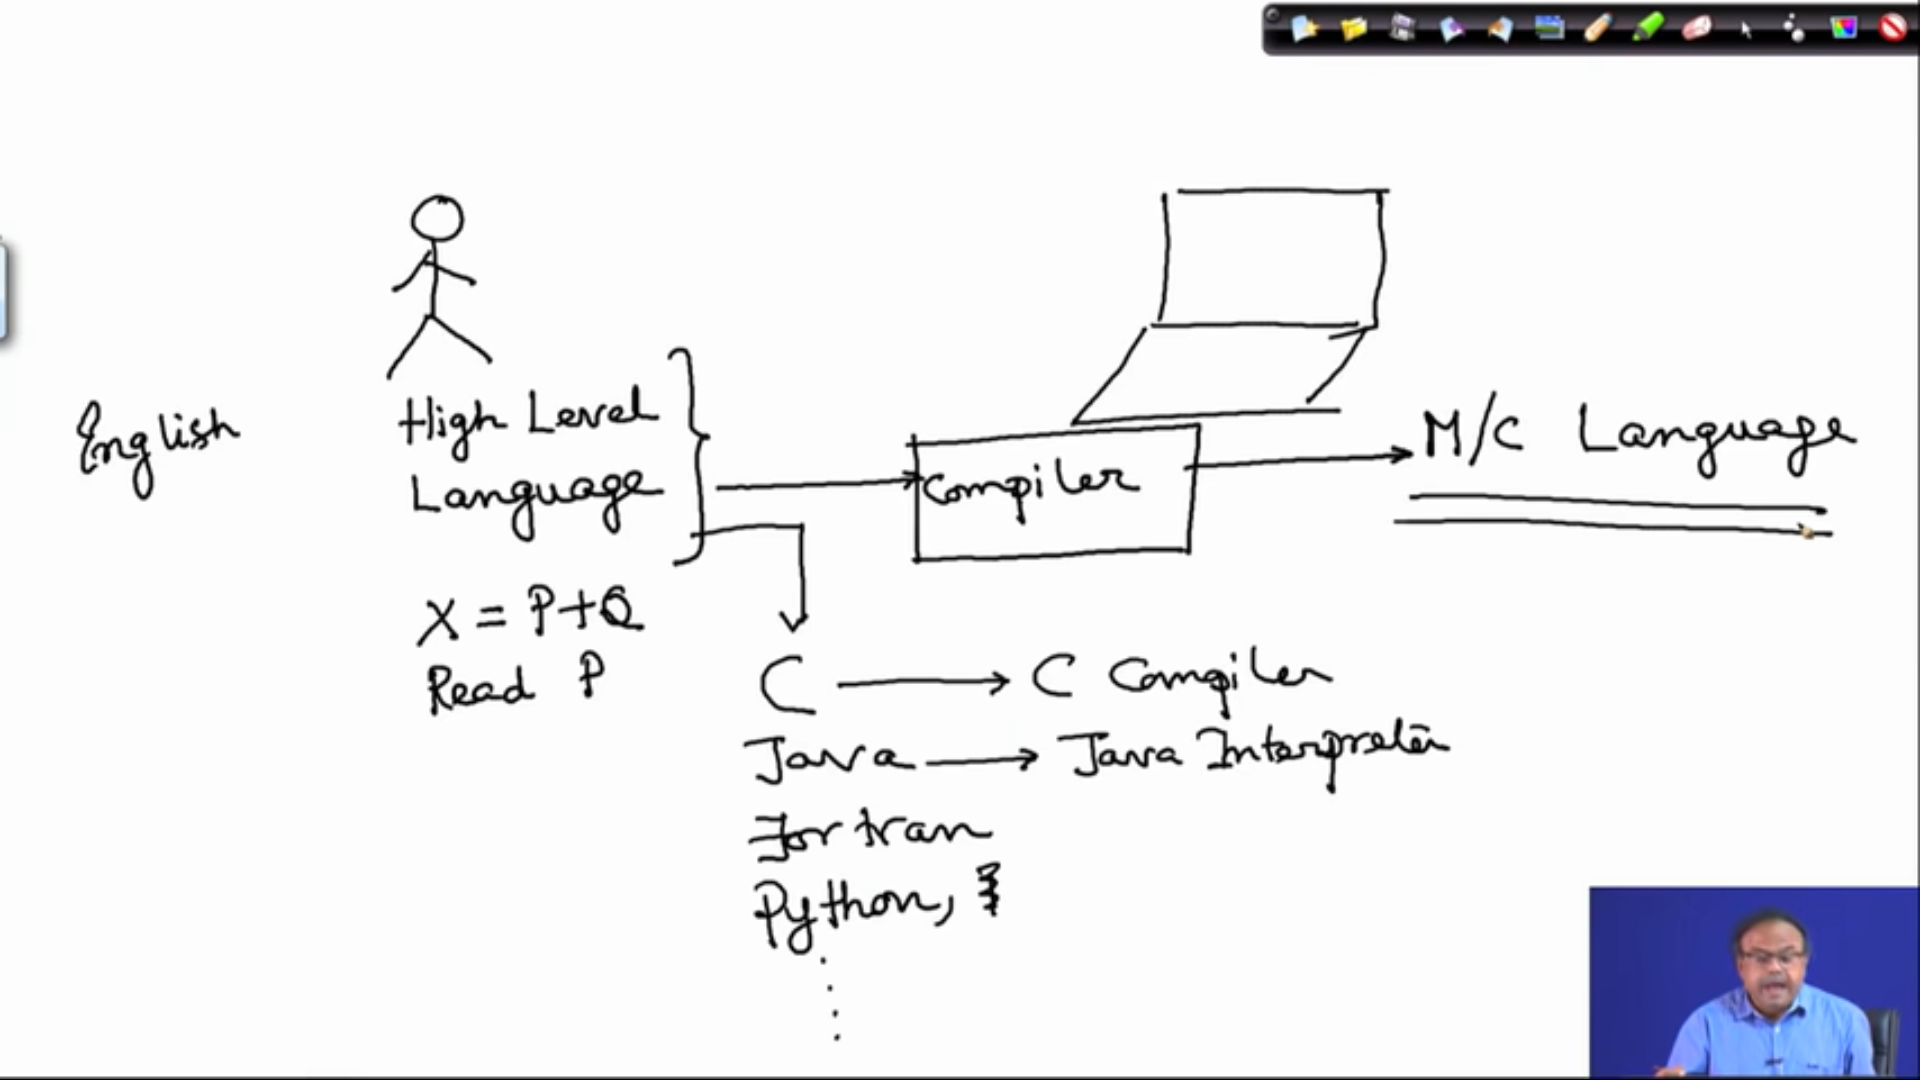 English
High Level
Language
Compiler
M/C Language
X = P+Q
Read P
C → C Compiler
Java → Java Interpreter
Fortran
Python,